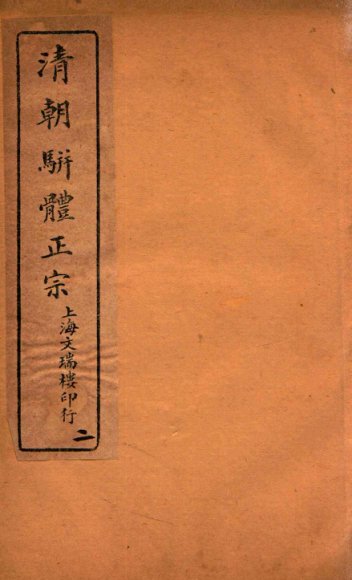 清朝駢體正宗
上海文瑞樓印行
二